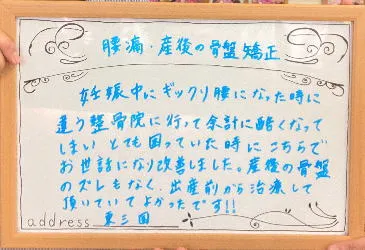 腰痛・産後の骨盤矯正
妊娠中にギックリ腰になった時に
違う整骨院に行って余計に酷くなって
しまい とても困っていた時にこちらで
お世話になり改善しました。産後の骨盤
のズレもなく、出産前から治療して
頂いていてよかったです!!
address 東三国